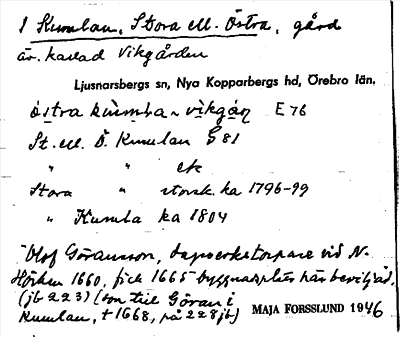 1 Kumlan, Stora ell. Östra, gård
äv. kallad Vikgården
Ljusnarsbergs sn, Nya Kopparbergs hd, Örebro län.
östra kumla ~ vikgån E 76
St. ell. Ö. Kumlan G 81
" " ek
Stora " storsk. ka 1796-99
" Kumla ka 1804
Olof Göransson, torpare vid N.
Hörken 1660, fick 1665 byggnadsplats här beviljad.
(jb 223) (son till Göran i
Kumlan, † 1668, på 228 jb)
MAJA FORSSLUND 1946